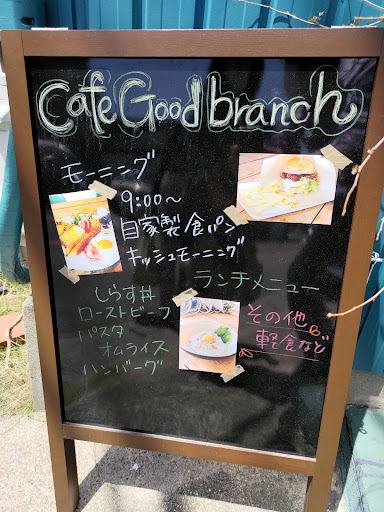 Cafe Good branch
モーニング
9:00～
自家製食パン
キッシュモーニング
ランチメニュー
しらす丼
ローストビーフ
パスタ
オムライス
ハンバーグ
その他
軽食など